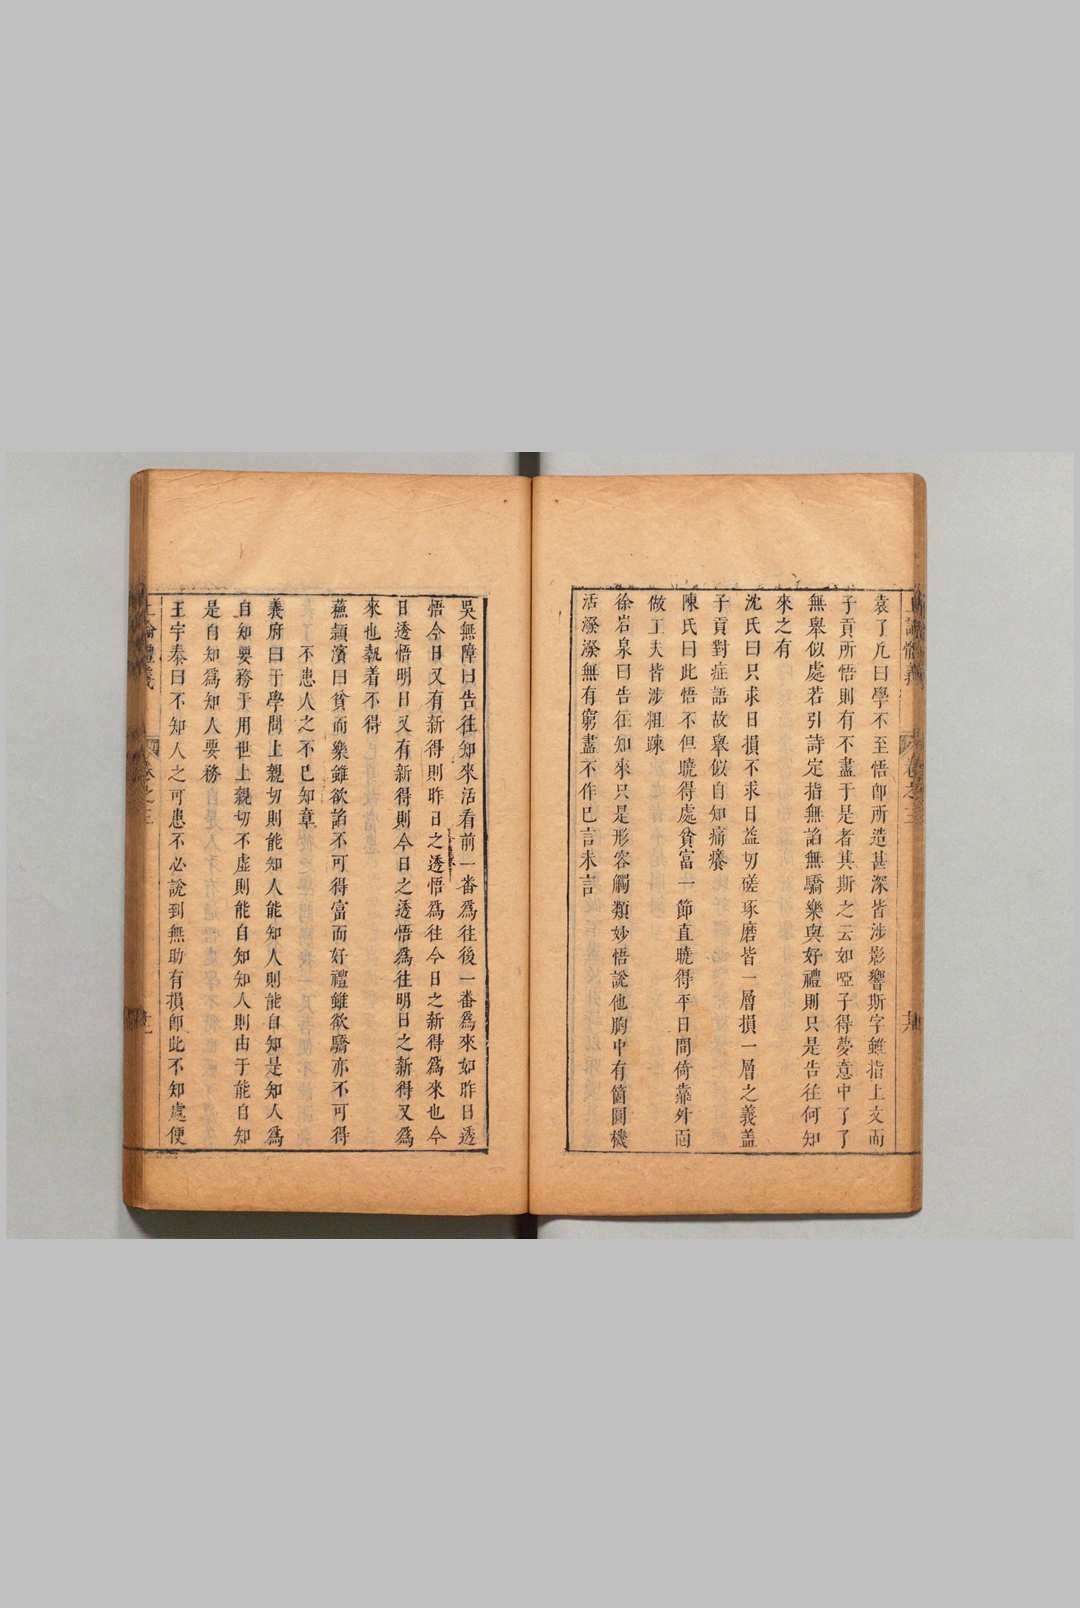 袁了凡曰學不至悟卽所造甚深皆涉影響斯字雖指上文而
子貢所悟則有不盡于是者其斯之云如啞子得夢意中了了
無舉似處若引詩定指無諂無驕樂與好禮則只是告往何知
來之有
沈氏曰只求日損不求日益切磋琢磨皆一層損一層之義盖
子貢對症語故舉似自知痛癢
陳氏曰此悟不但曉得處貧富一節直曉得平日間倚靠外面
做工夫皆涉粗踈
徐岩泉曰告往知來只是形容觸類妙悟說他胸中有箇圓機
活潑潑無有窮盡不作已言未言
吳無障曰告往知來活看前一番爲往後一番爲來如昨日透
悟今日又有新得則昨日之透悟爲往今日之新得爲來也今
日透悟明日又有新得則今日之透悟爲往明日之新得又爲
來也執着不得
蘓潁濱曰貧而樂雖欲諂不可得富而好禮雖欲驕亦不可得
不患人之不已知章
義府曰于學問上親切則能知人能知人則能自知是知人爲
自知要務于用世上親切不虛則能自知知人則由于能自知
是自知爲知人要務
王宇泰曰不知人之可患不必說到無助有損卽此不知處便
卷之三